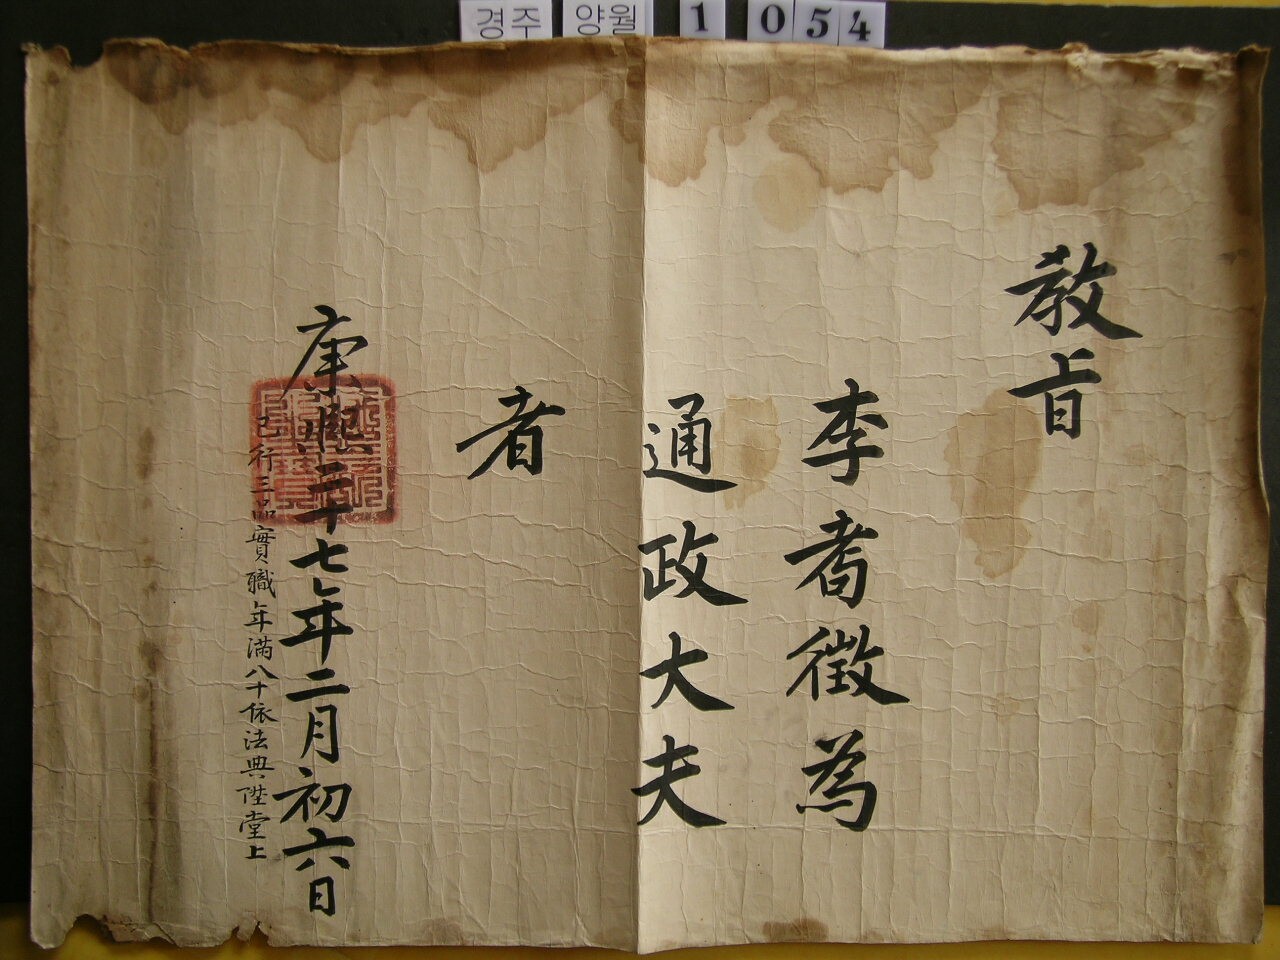 경주 양월 1 054
教旨
李耇徵爲
通政大夫
者
康熙三十七年二月初六日
已行三品實職年滿八十依法典陞堂上